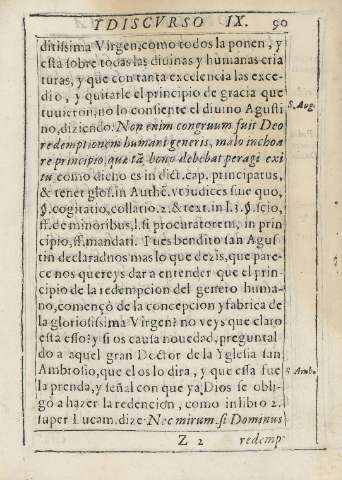 Y DISCVRSO IX. 90
ditissima Virgen, como todos la ponen, y
està sobre todas las diuinas y humanas cria
turas, y que con tanta excelencia las exce-
dio, y quitarle el principio de gracia que
tuuieron, no lo consiente el diuino Agusti
S. Aug.
no, diziendo: Non enim congruum fuit Deo
redemptionem humani generis, malo inchoa
re principio, quæ tã bono debebat peragi exi
tu, como dicho es in dict. cap. principatus,
& tenet glos. in Authẽ. vt iudices sine quo,
§. cogitatio, collatio. 2. & text. in l. 3. §. scio,
ff. de minoribus, l. si procuratorem, in prin
cipio, ff. mandati. Pues bendito san Agus
tin declaradnos mas lo que dezis, que pare-
ce nos quereys dar a entender que el prin-
cipio de la redempcion del genero huma-
no, començò de la concepcion y fabrica de
la gloriosissima Virgen? no veys que claro
esta esso? y si os causa nouedad, preguntal
do a aquel gran Doctor de la Yglesia san
Ambrosio, que el os lo dira, y que esta fue
S. Amb.
la prenda, y señal con que ya Dios se obli-
gò a hazer la redencion, como in libro 2.
super Lucam, dize: Nec mirum, si Dominus
Z 2 redemp